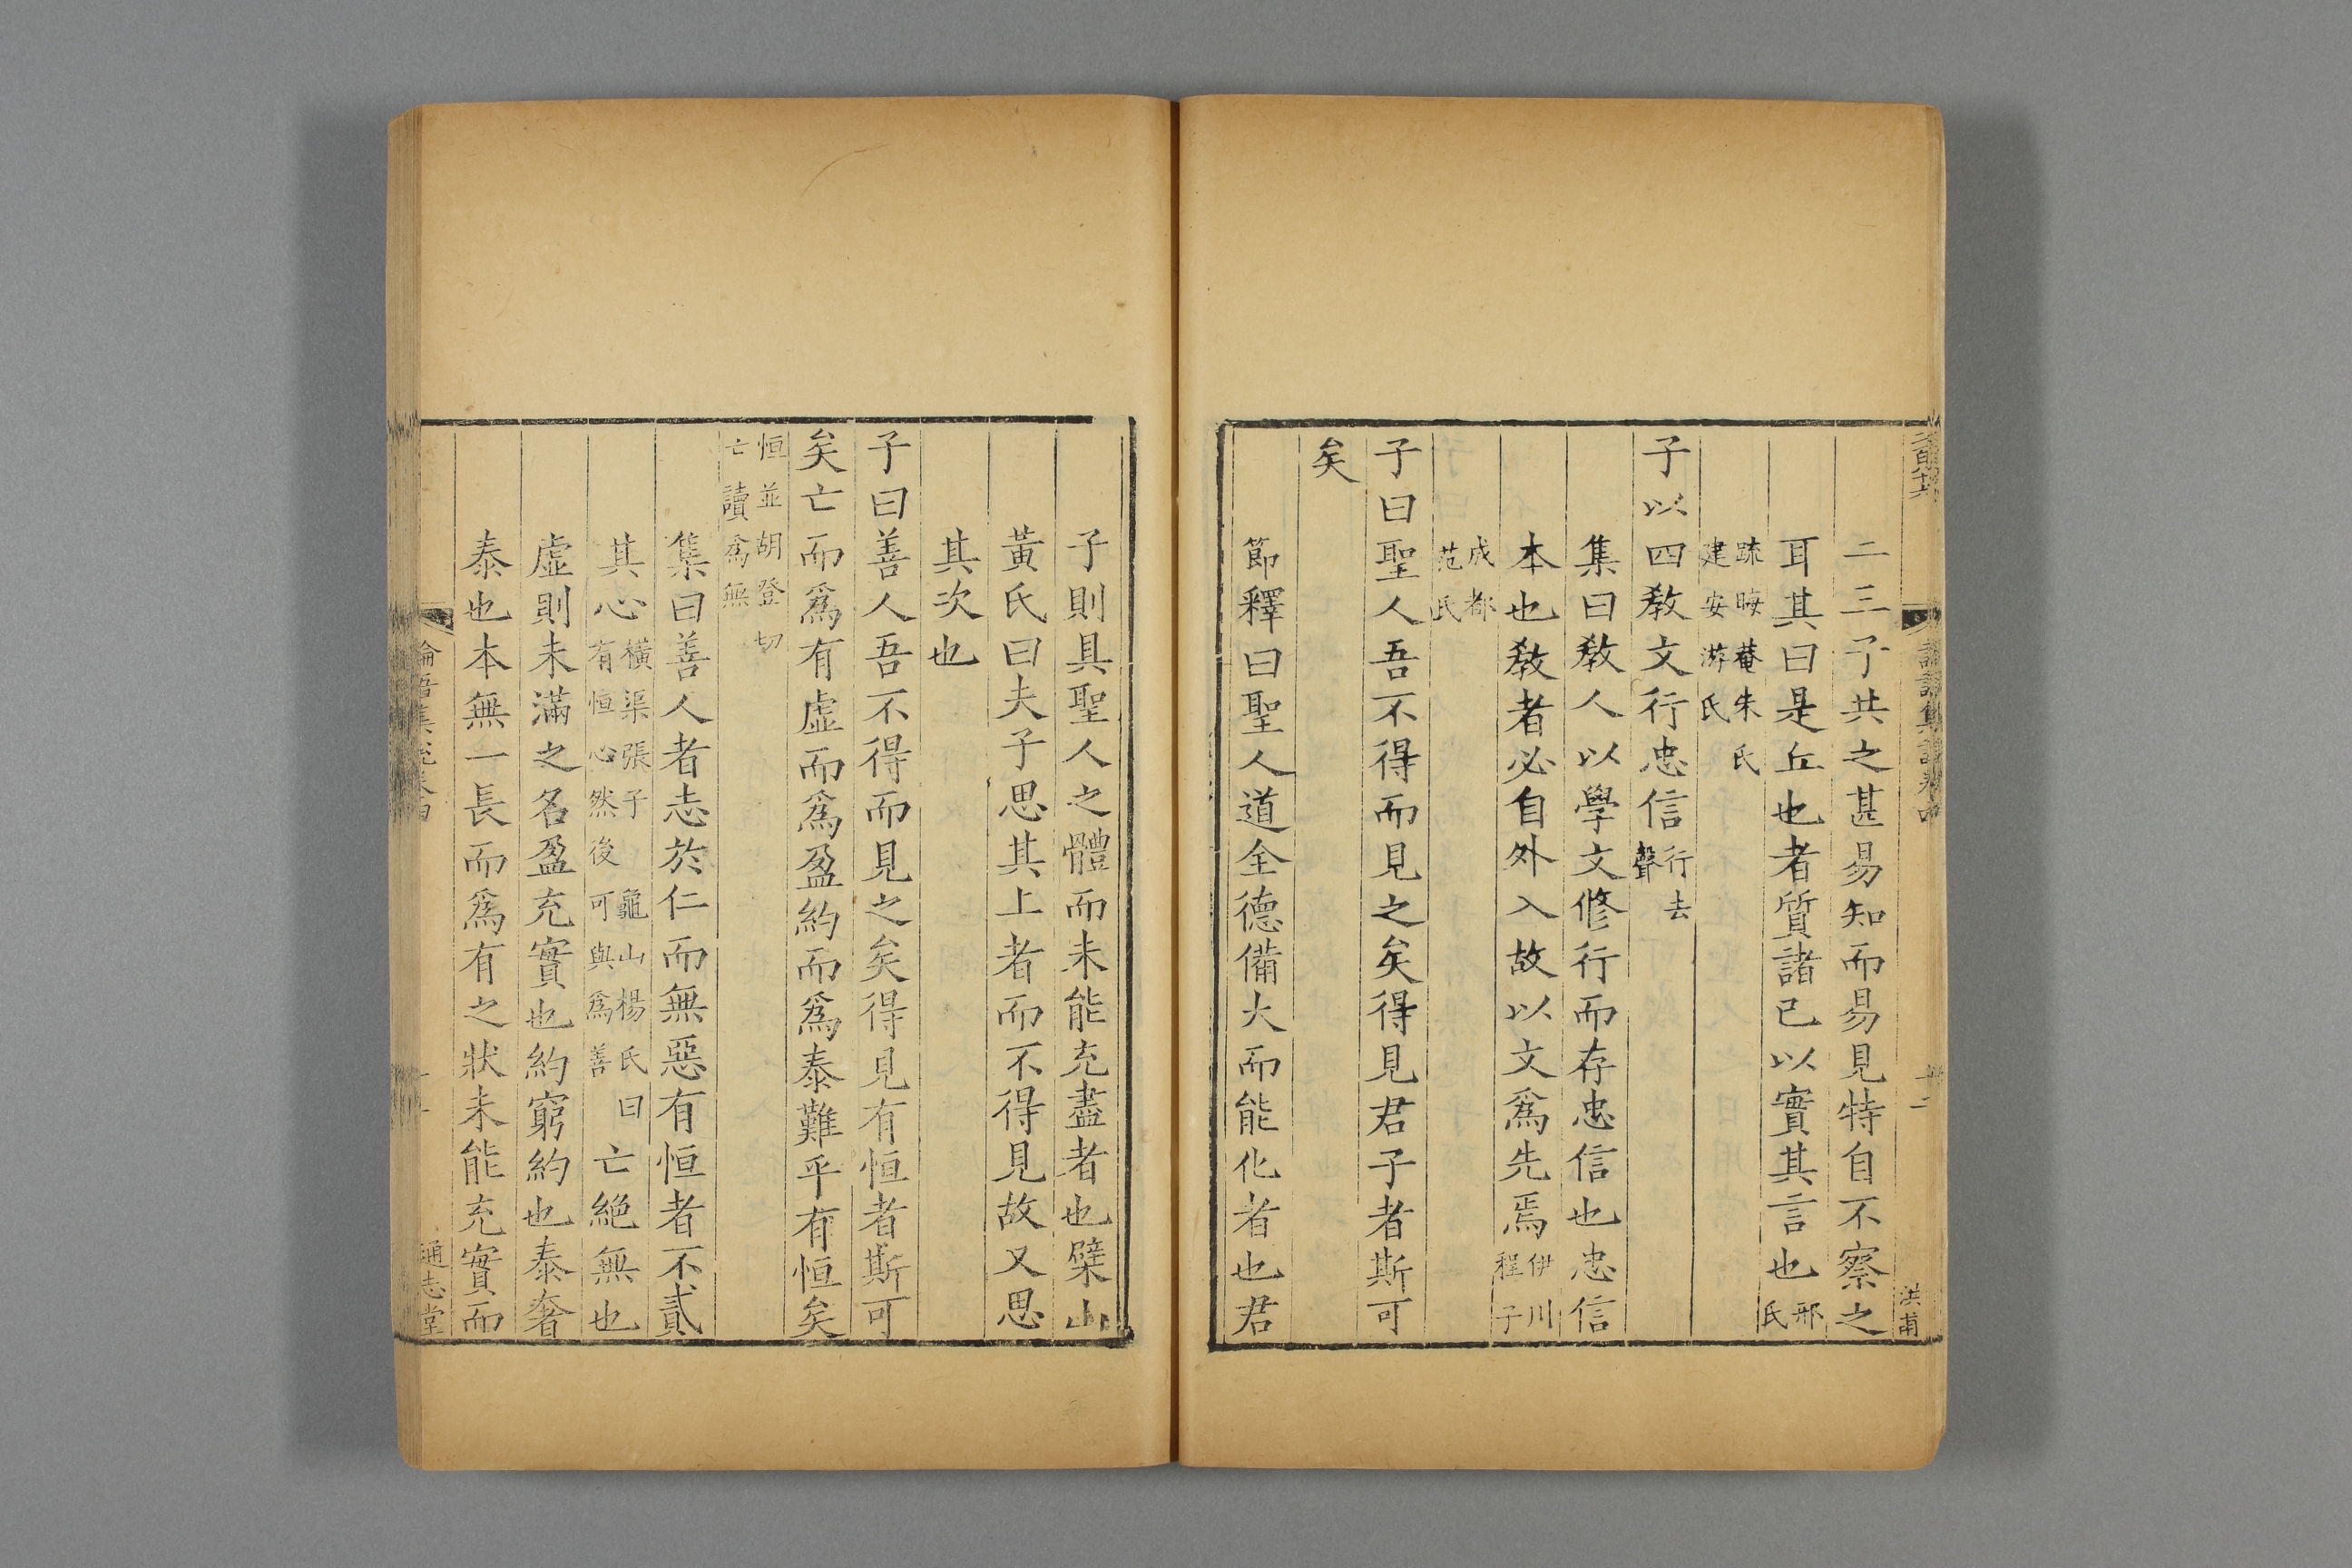 二三子共之甚易知而易見特自不察之
耳其曰是丘也者質諸已以實其言也邢氏
疏晦菴朱氏建安游氏
子以四敎文行忠信行去聲
集曰敎人以學文修行而存忠信也忠信
本也敎者必自外入故以文爲先焉伊川程子
成都范氏
子曰聖人吾不得而見之矣得見君子者斯可
矣
節釋曰聖人道全德備大而能化者也君
洪甫
子則具聖人之體而未能充盡者也檗山
黃氏曰夫子思其上者而不得見故又思
其次也
子曰善人吾不得而見之矣得見有恒者斯可
矣亡而爲有虛而爲盈約而爲泰難乎有恒矣
恒並胡登切亡讀爲無
集曰善人者志於仁而無惡有恒者不貳
其心橫渠張子龜山楊氏曰有恒心然後可與爲善亡絕無也
虛則未滿之名盈充實也約窮約也泰奢
泰也本無一長而爲有之狀未能充實而
論語集說卷四
通志堂